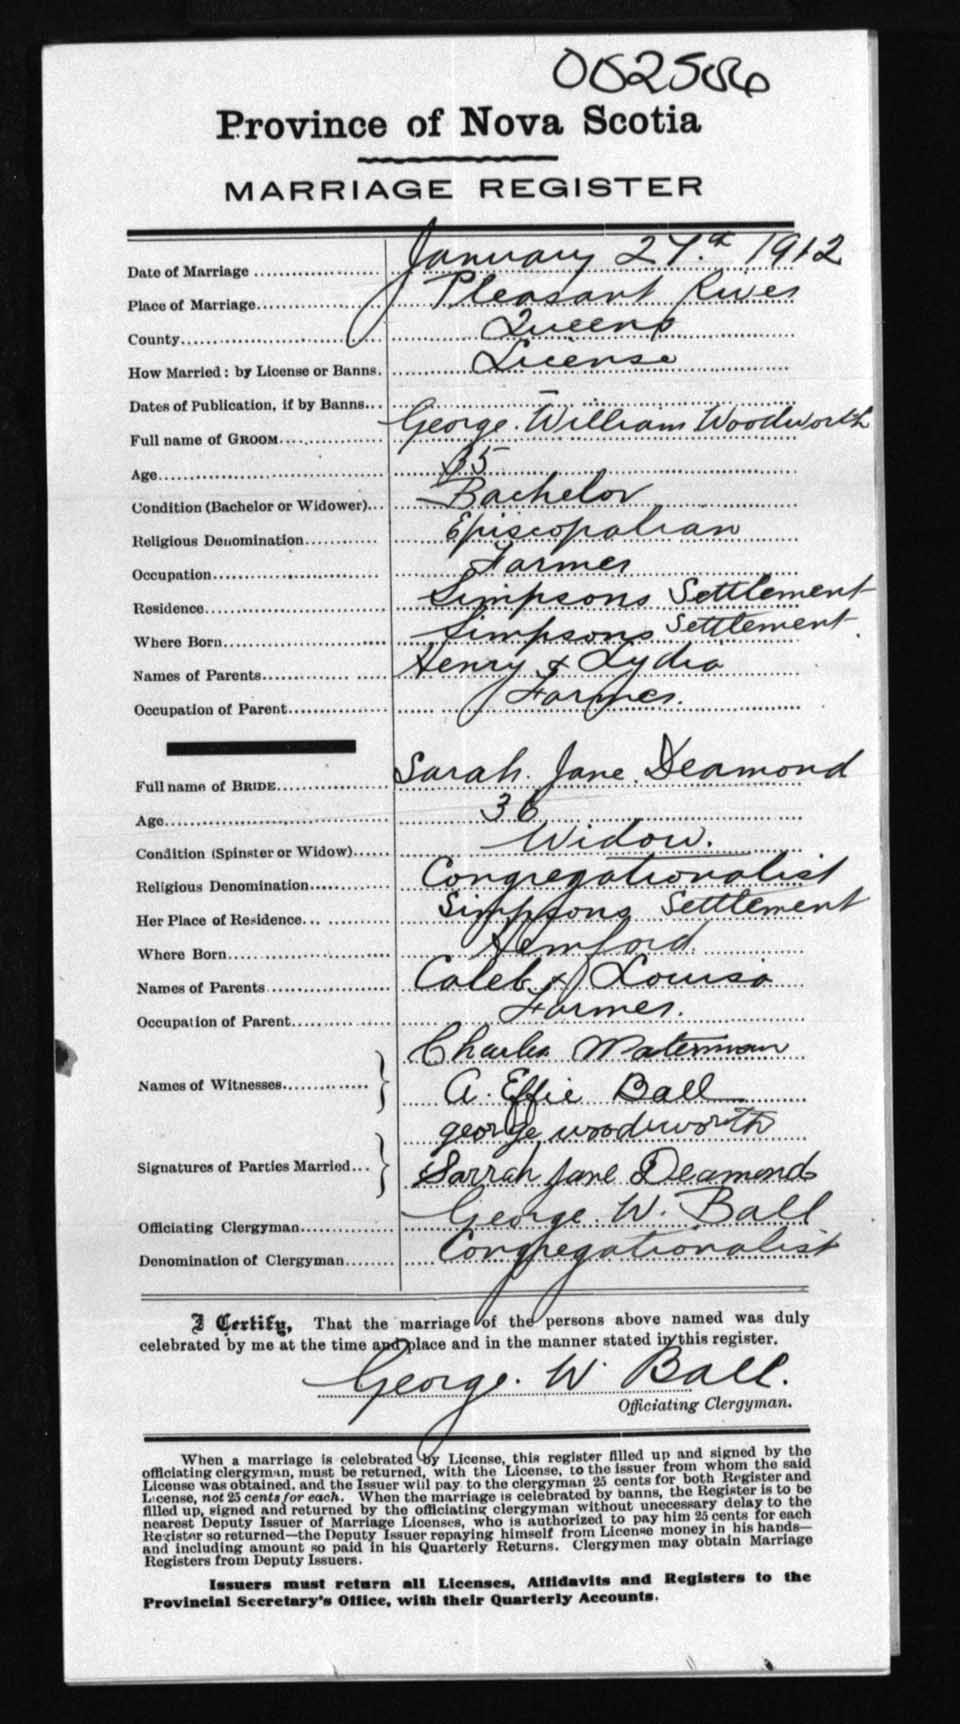 002586
Province of Nova Scotia
MARRIAGE REGISTER
Date of Marriage January 27th 1912
Place of Marriage Pleasant River
County Queens
How Married: by License or Banns. License
Dates of Publication, if by Banns... —
Full name of GROOM George William Woodworth
Age 35
Condition (Bachelor or Widower)... Bachelor
Religious Denomination Episcopalian
Occupation Farmer
Residence Simpsons Settlement
Where Born Simpsons Settlement
Names of Parents Henry & Lydia
Occupation of Parent Farmer.
Full name of BRIDE Sarah Jane Deamond
Age 36
Condition (Spinster or Widow) Widow.
Religious Denomination Congregationalist
Her Place of Residence Simpsons Settlement
Where Born Hemford
Names of Parents Caleb & Louisa
Occupation of Parent Farmer.
Charles Waterman
Names of Witnesses A. Effie Ball
george woodworth
Signatures of Parties Married Sarrah jane Deamond
Officiating Clergyman George W. Ball
Denomination of Clergyman Congregationalist
I Certify, That the marriage of the persons above named was duly
celebrated by me at the time and place and in the manner stated in this register.
George W. Ball.
Officiating Clergyman.
When a marriage is celebrated by License, this register filled up and signed by the
officiating clergyman, must be returned, with the License, to the issuer from whom the said
License was obtained, and the Issuer will pay to the clergyman 25 cents for both Register and
License, not 25 cents for each. When the marriage is celebrated by banns, the Register is to be
filled up, signed and returned by the officiating clergyman without unnecessary delay to the
nearest Deputy Issuer of Marriage Licenses, who is authorized to pay him 25 cents for each
Register so returned—the Deputy Issuer repaying himself from License money in his hands—
and including amount so paid in his Quarterly Returns. Clergymen may obtain Marriage
Registers from Deputy Issuers.
Issuers must return all Licenses, Affidavits and Registers to the
Provincial Secretary's Office, with their Quarterly Accounts.